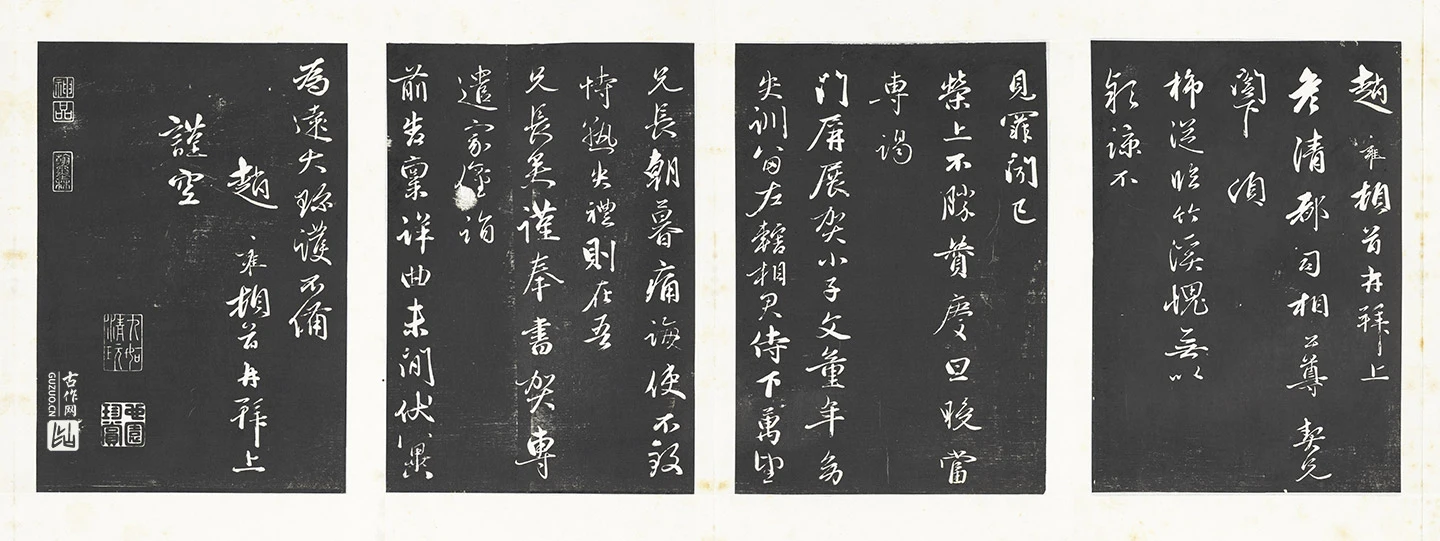 趙雍頓首再拜上
老清郡司相公尊契兄
閤下須
柿從臨竹溪愧無以
報諒不
見罪閣已
榮上不勝賛慶旦晚當
專謁
門屏展賀小子文童年多
失訓旨左轄相君侍下萬望
兄長朝暮痛誨使不致
恃熱失禮則在吾
兄長是謹奉書賀專
遣家僮詣
前告稟詳曲未間伏冀
為遠大珎護不備
趙雍頓首再拜上
謹空
神品
九如清玩
古作网
GUZUO.CN